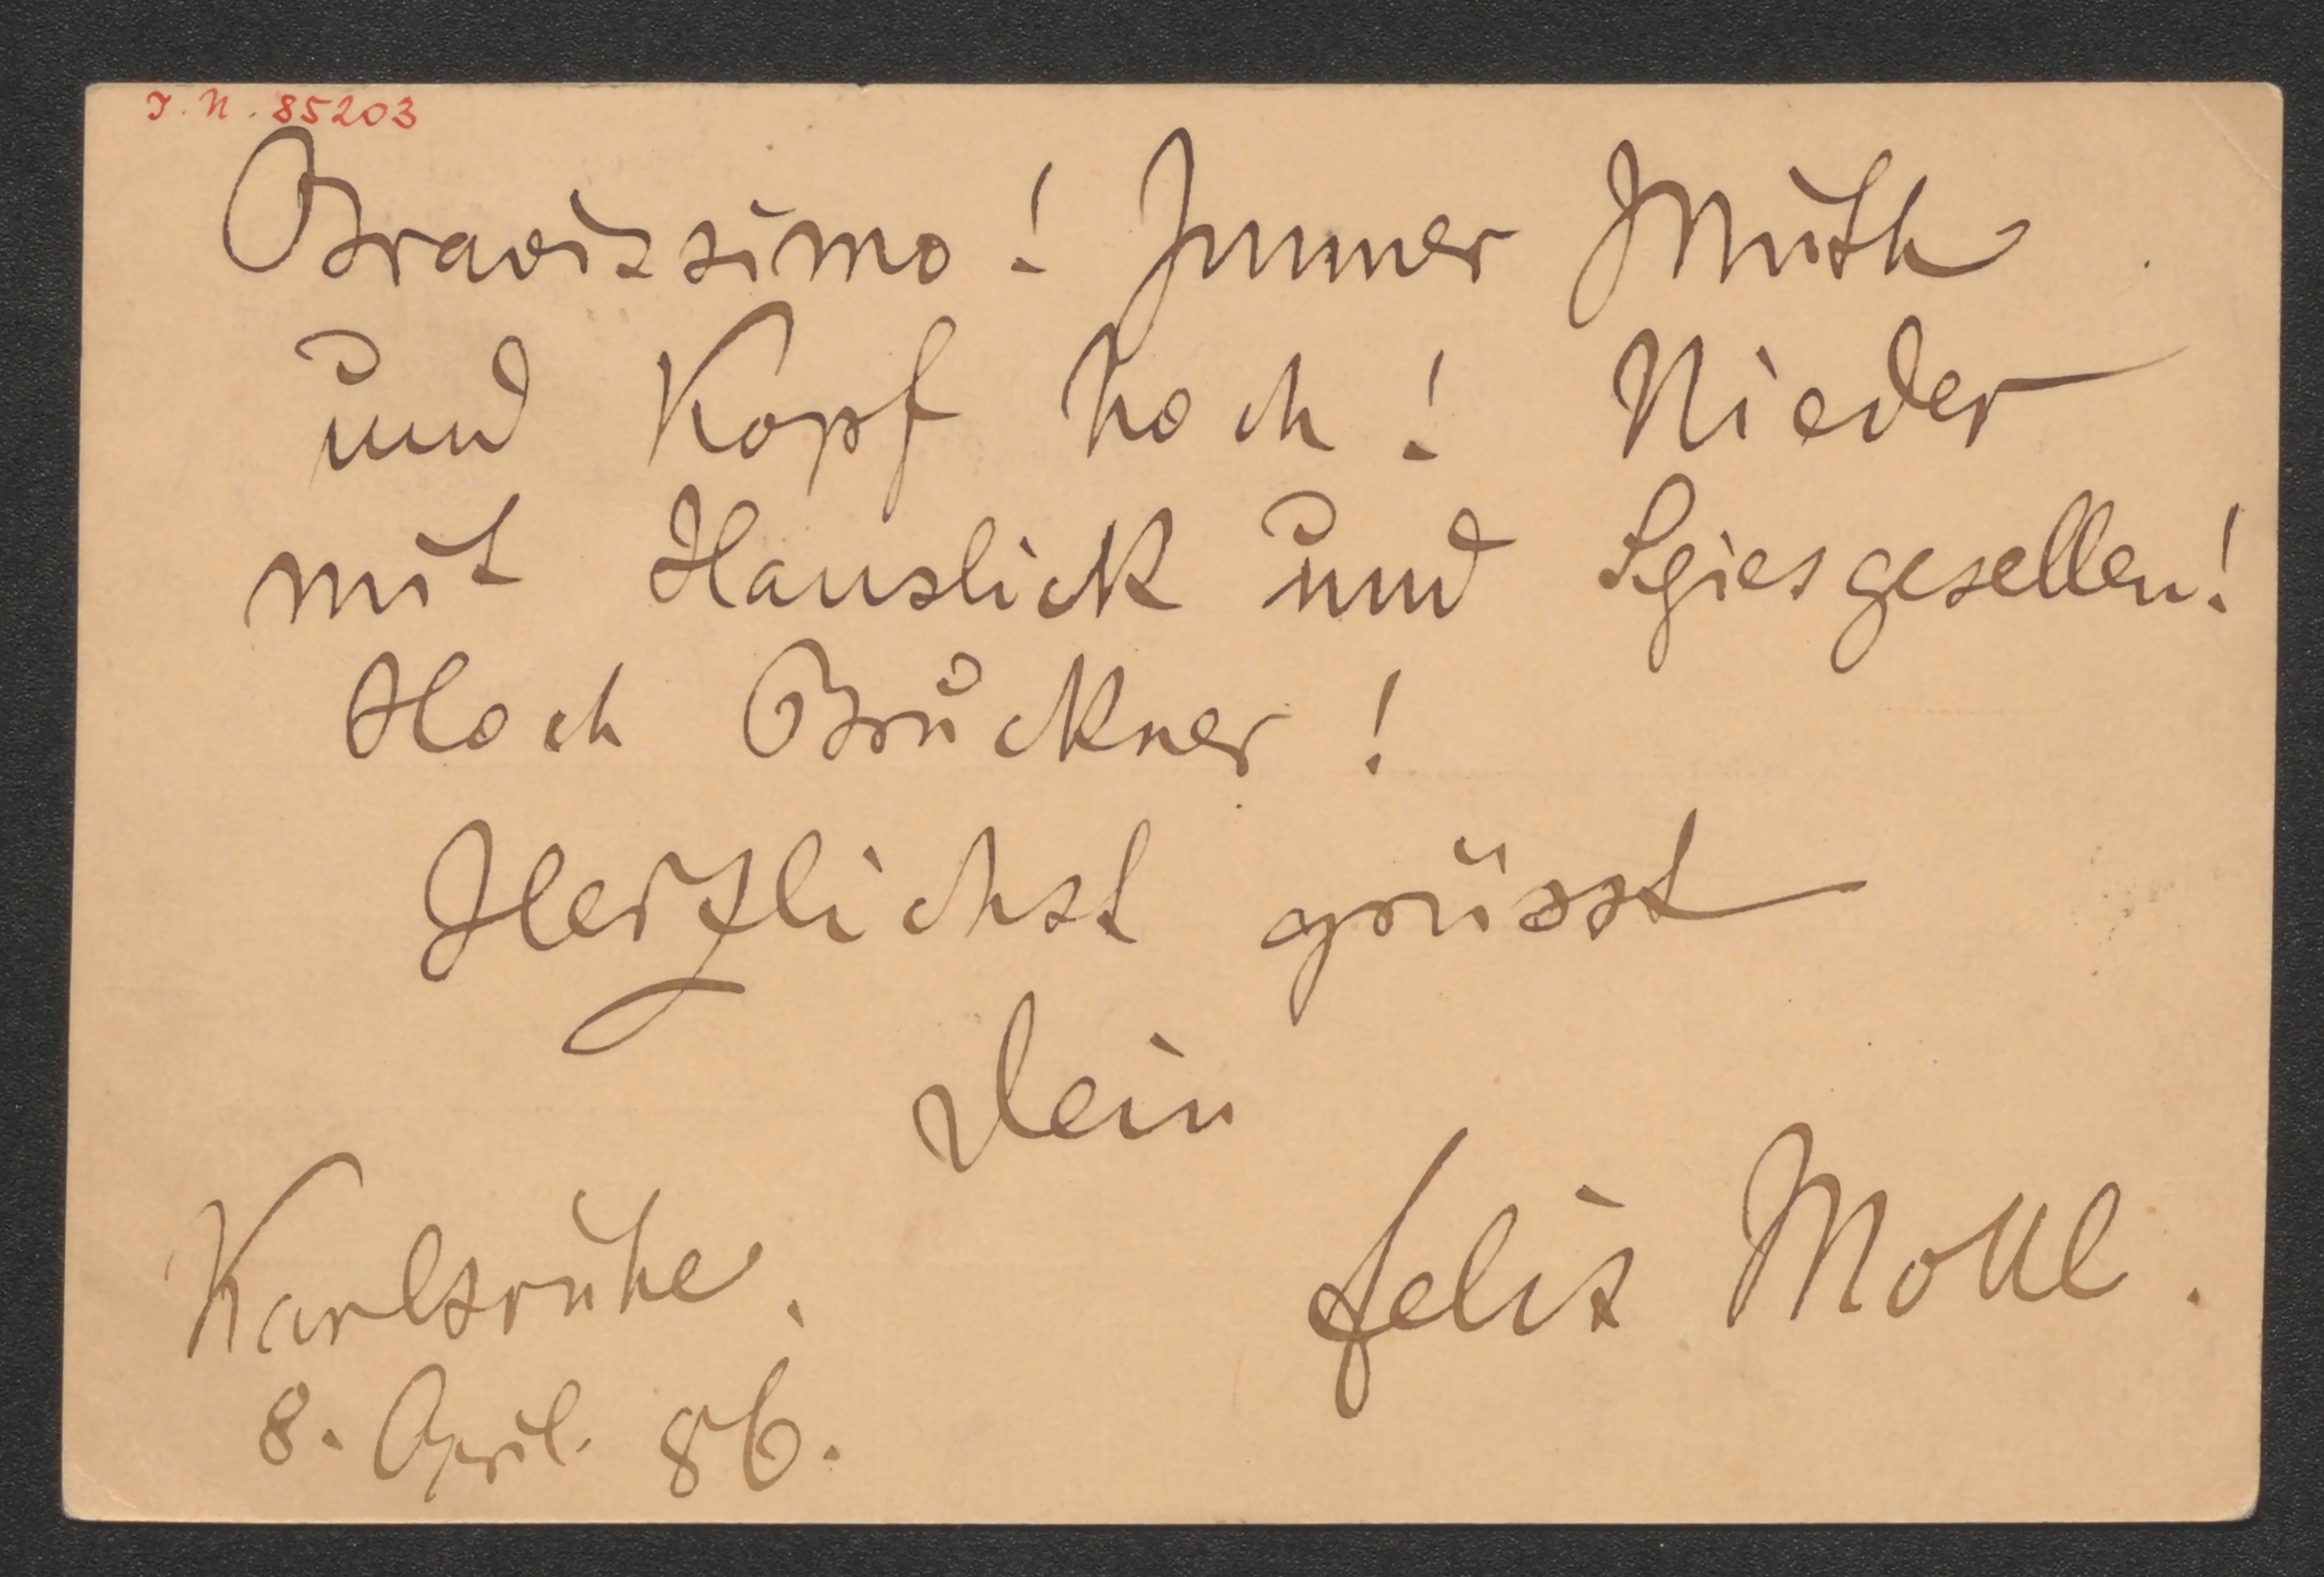 J. N. 85203
Bravissimo! Immer Muth
und Kopf hoch! Nieder
mit Hanslick und Spiesgesellen!
Hoch Bruckner!
Herzlichst grüsst
Dein
Felix Mottl.
Karlsruhe.
8. April. 86.